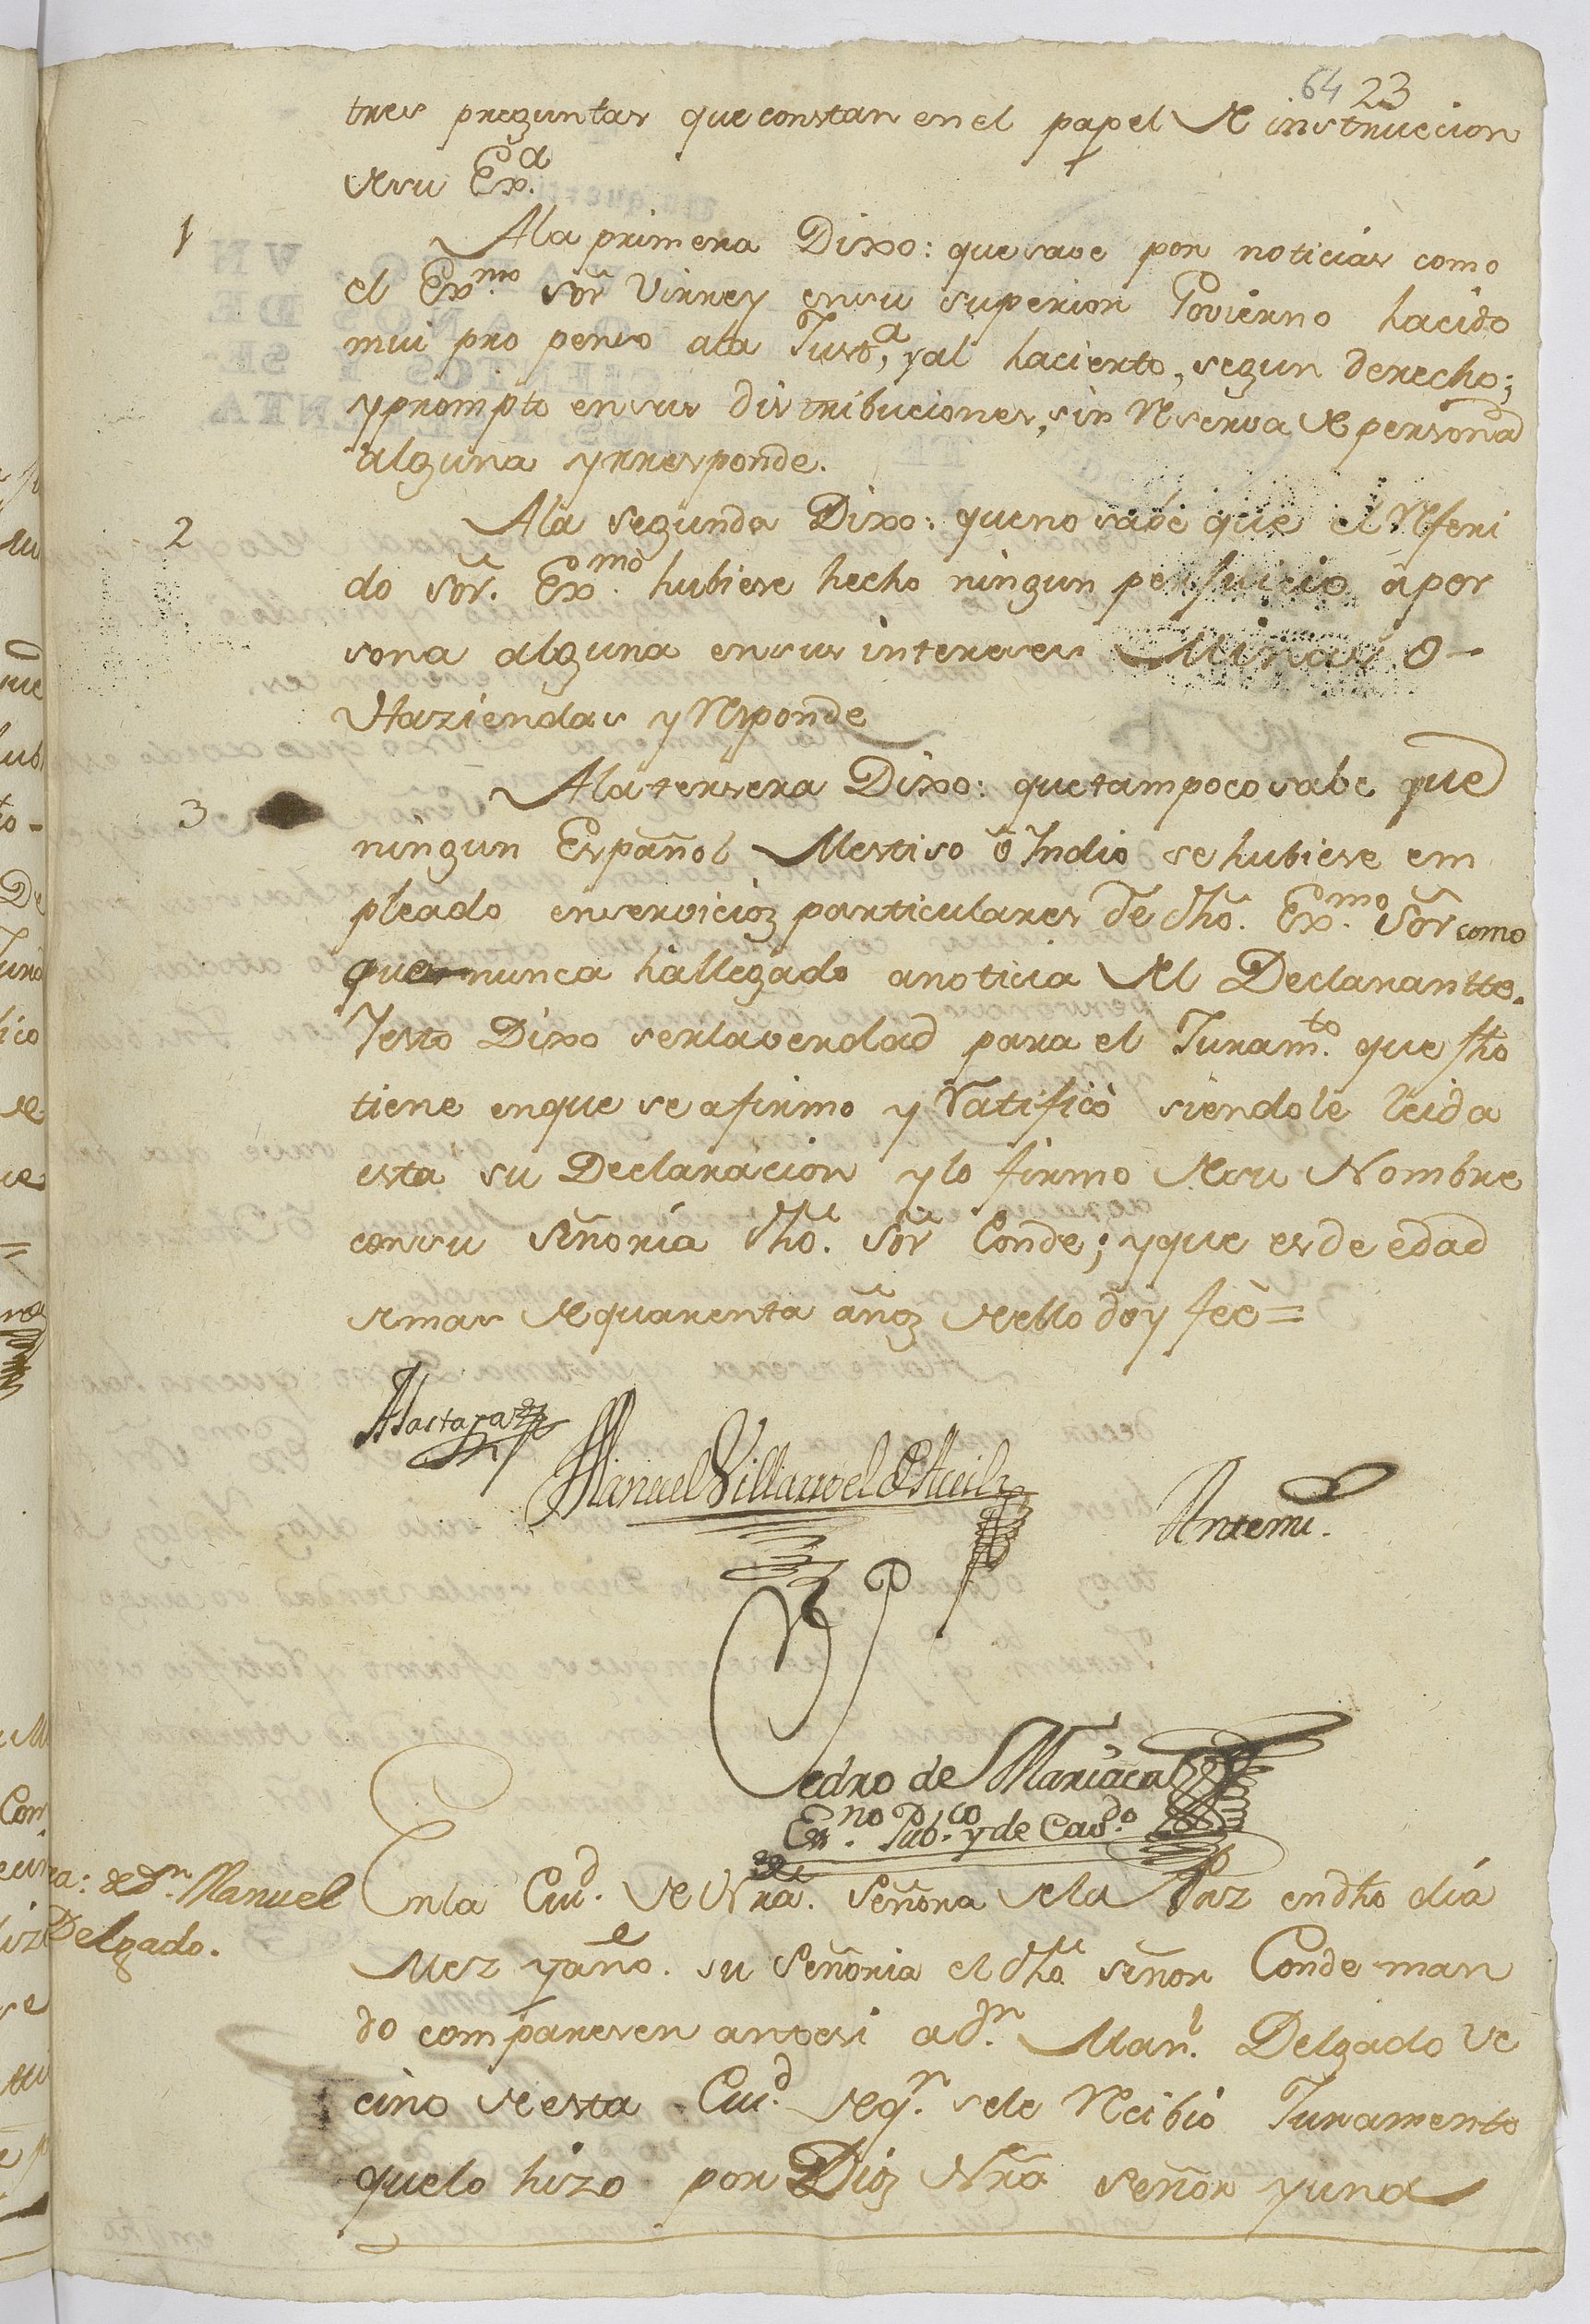 64 23
tres preguntas que constan en el papel de instruccion
de su Exa.
1
A la primera Dixo: que save por noticias como
el Exmo. Sor Virrey en su superior Govierno ha cido
mui pro penso a la Justa, y al hacierto, segun derecho;
y prompto en sus distribuciones, sin Reserva de persona
alguna y rresponde.
2
A la segunda Dixo: que no save que el Referi
do Sor. Exmo. hubiese hecho ningun perjuicio á per
sona alguna en sus intereses Minas o
Haziendas y Responde
3
A la tersera Dixo: que tampoco sabe que
ningun Español Mestiso ô Indio se hubiese em
pleado en servicios particulares de dho. Exmo. Sor como
que nunca ha llegado a noticia del Declarantte.
Y esto Dixo ser la verdad para el Juramto. que fho
tiene en que se afirmo y Ratificò siendole leida
esta su Declaracion y lo firmo de su Nombre
con su Señoria dho. Sor Conde; y que es de edad
de mas de quarenta años de ello doy feè =
Manuel Villarroel
Antemi.
Pedro de Mariaca
Esno. Pubco. y de Cavdo.
ra: de Dn. Manuel
Delgado.
En la Ciud. de Nra. Señora de la Paz en dho dia
Mes y año. su Señoria el dho señor Conde man
do comparesen ante si a Dn. Manl. Delgado Ve
cino de esta Ciud. de qn. se le Recibio Juramento
que lo hizo por Dios Nro señor y una